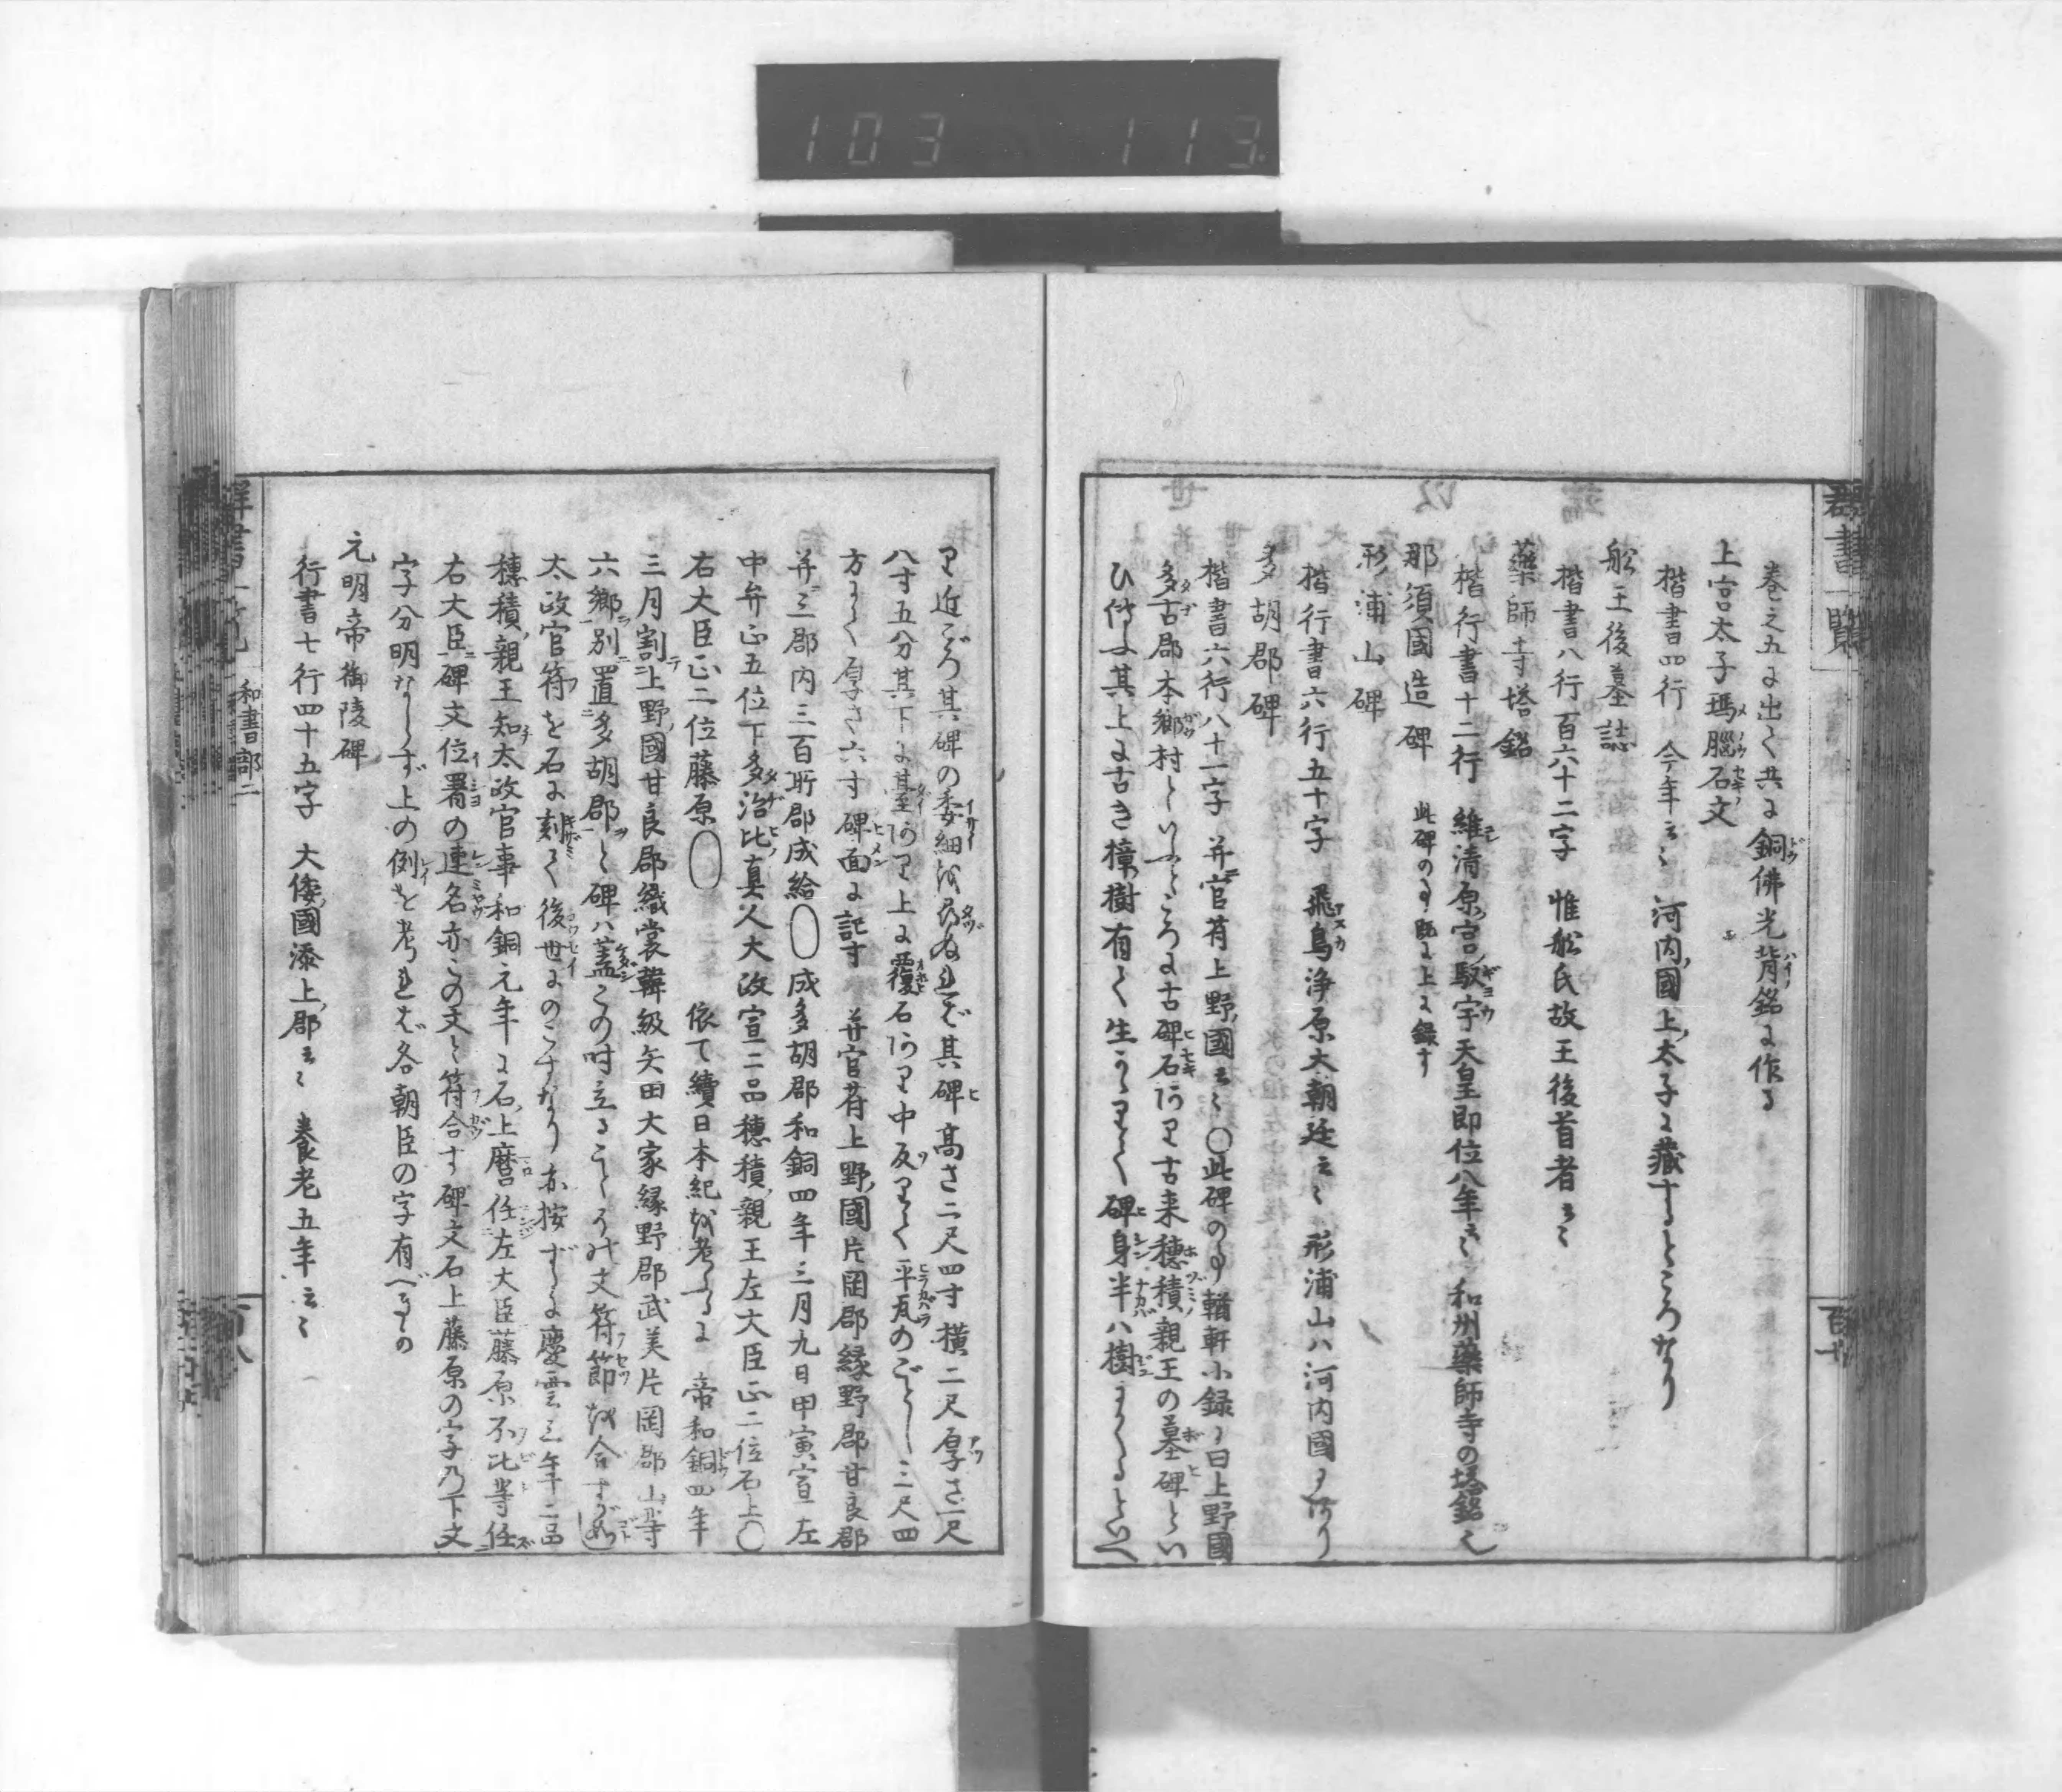 103 113
群書一覽
巻之五に出て共に銅佛光背銘に作る
上宮太子瑪腦石文
楷書四行 今年云々 河内國上太子に藏するところなり
舩王後墓誌
楷書八行百六十二字 惟舩氏故王後首者云々
藥師寺塔銘
楷行書十二行 維清原宮馭宇天皇即位八年云々 和州藥師寺の塔銘也
那須國造碑 此碑の事既に上に録す
形浦山碑
楷行書六行五十字 飛鳥浄原大朝廷云々 形浦山ハ河内國にあり
多胡郡碑
楷書六行八十一字 弁官苻上野國云々 ○此碑の事輶軒小録ニ曰上野國
多古郡本郷村といふところに古碑石あり古来穂積親王の墓碑とい
ひ傳ふ其上に古き樟樹有て生かゝりて碑身半ハ樹にかくるといへ
百十
り近ごろ其碑の委細を尋ぬれば其碑高さ二尺四寸横二尺厚さ一尺
八寸五分其下に臺あり上に覆石あり中反りて平瓦のごとし三尺四
方にて厚さ六寸碑面に記す 弁官苻上野國片罡郡緑野郡甘良郡
并三郡内三百戸郡成給○成多胡郡和銅四年三月九日甲寅宣左
中弁正五位下多治比真人大政宣二品穂積親王左大臣正二位石上○
右大臣正二位藤原○ 依て續日本紀を考ふるに 帝和銅四年
三月割上野國甘良郡織裳韓級矢田大家緑野郡武美片罡郡山等
六郷別置多胡郡と碑ハ蓋この時立ることその文符節を合すがごとし
太政官符を石に刻て後世にのこすなり亦按ずるに慶雲三年二品
穂積親王知太政官事和銅元年に石上麿任左大臣藤原不比等任
右大臣碑文位署の連名亦この文と符合す碑文石上藤原の字乃下文
字分明ならず上の例を考れば各朝臣の字有べきもの
元明帝御陵碑
行書七行四十五字 大倭國添上郡云々 養老五年云々
和書部二